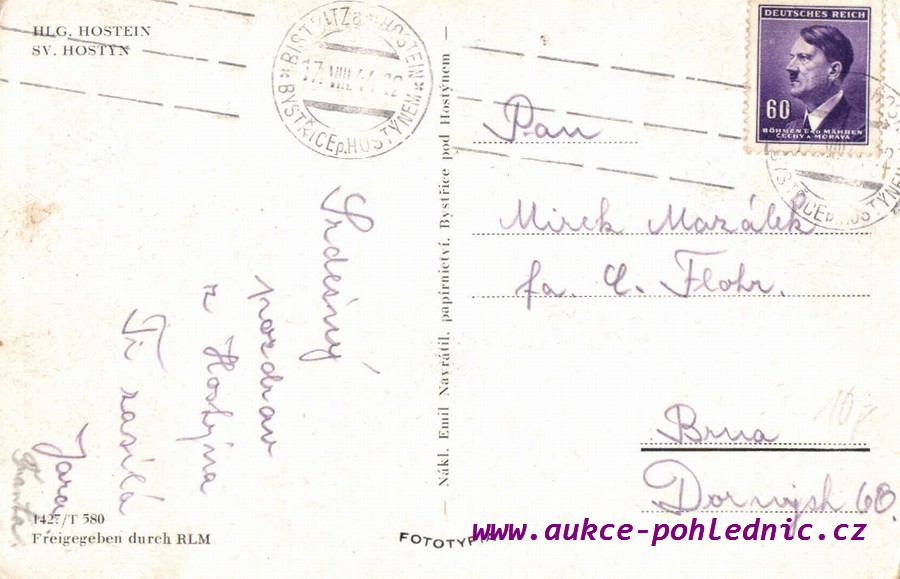 HLG. HOSTEIN
SV. HOSTÝN
BISTRITZ a. HOSTEIN
17. VIII. 44
BYSTŘICE p. HOSTÝNEM
DEUTSCHES REICH
60
BÖHMEN UND MÄHREN
ČECHY A MORAVA
BYSTŘICE p. HOSTÝNEM
Srdečný
pozdrav
z Hostýna
Ti zasílá
Jara
Franta
Nákl. Emil Navrátil, papírnictví, Bystřice pod Hostýnem
Pan
Mirek Mazálek
fa. C. Flohr.
Brna
Dornych 60.
10,-
1427/T 580
Freigegeben durch RLM
FOTOTYPIA
www.aukce-pohlednic.cz